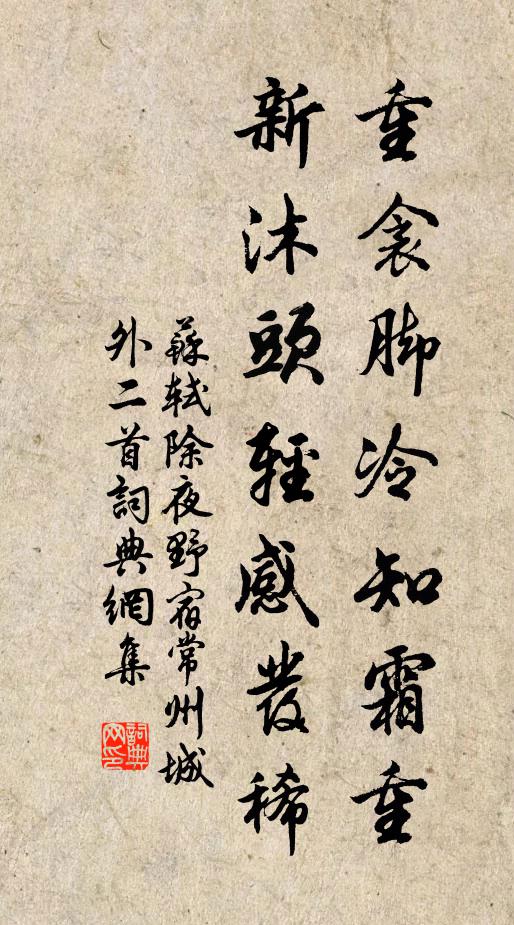 重衾脚冷知霜重
新沐頭輕感發稀
蘇軾除夜野宿常州城
外二首詞典網集
詞典網印